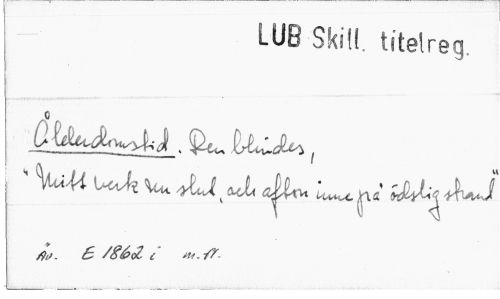 LUB Skill. titelreg.
Ålderdomstid. Den blindes,
"Mitt verk den slut, och afton inne på ödslig strand"
Äv. E 1862 i m. fl.